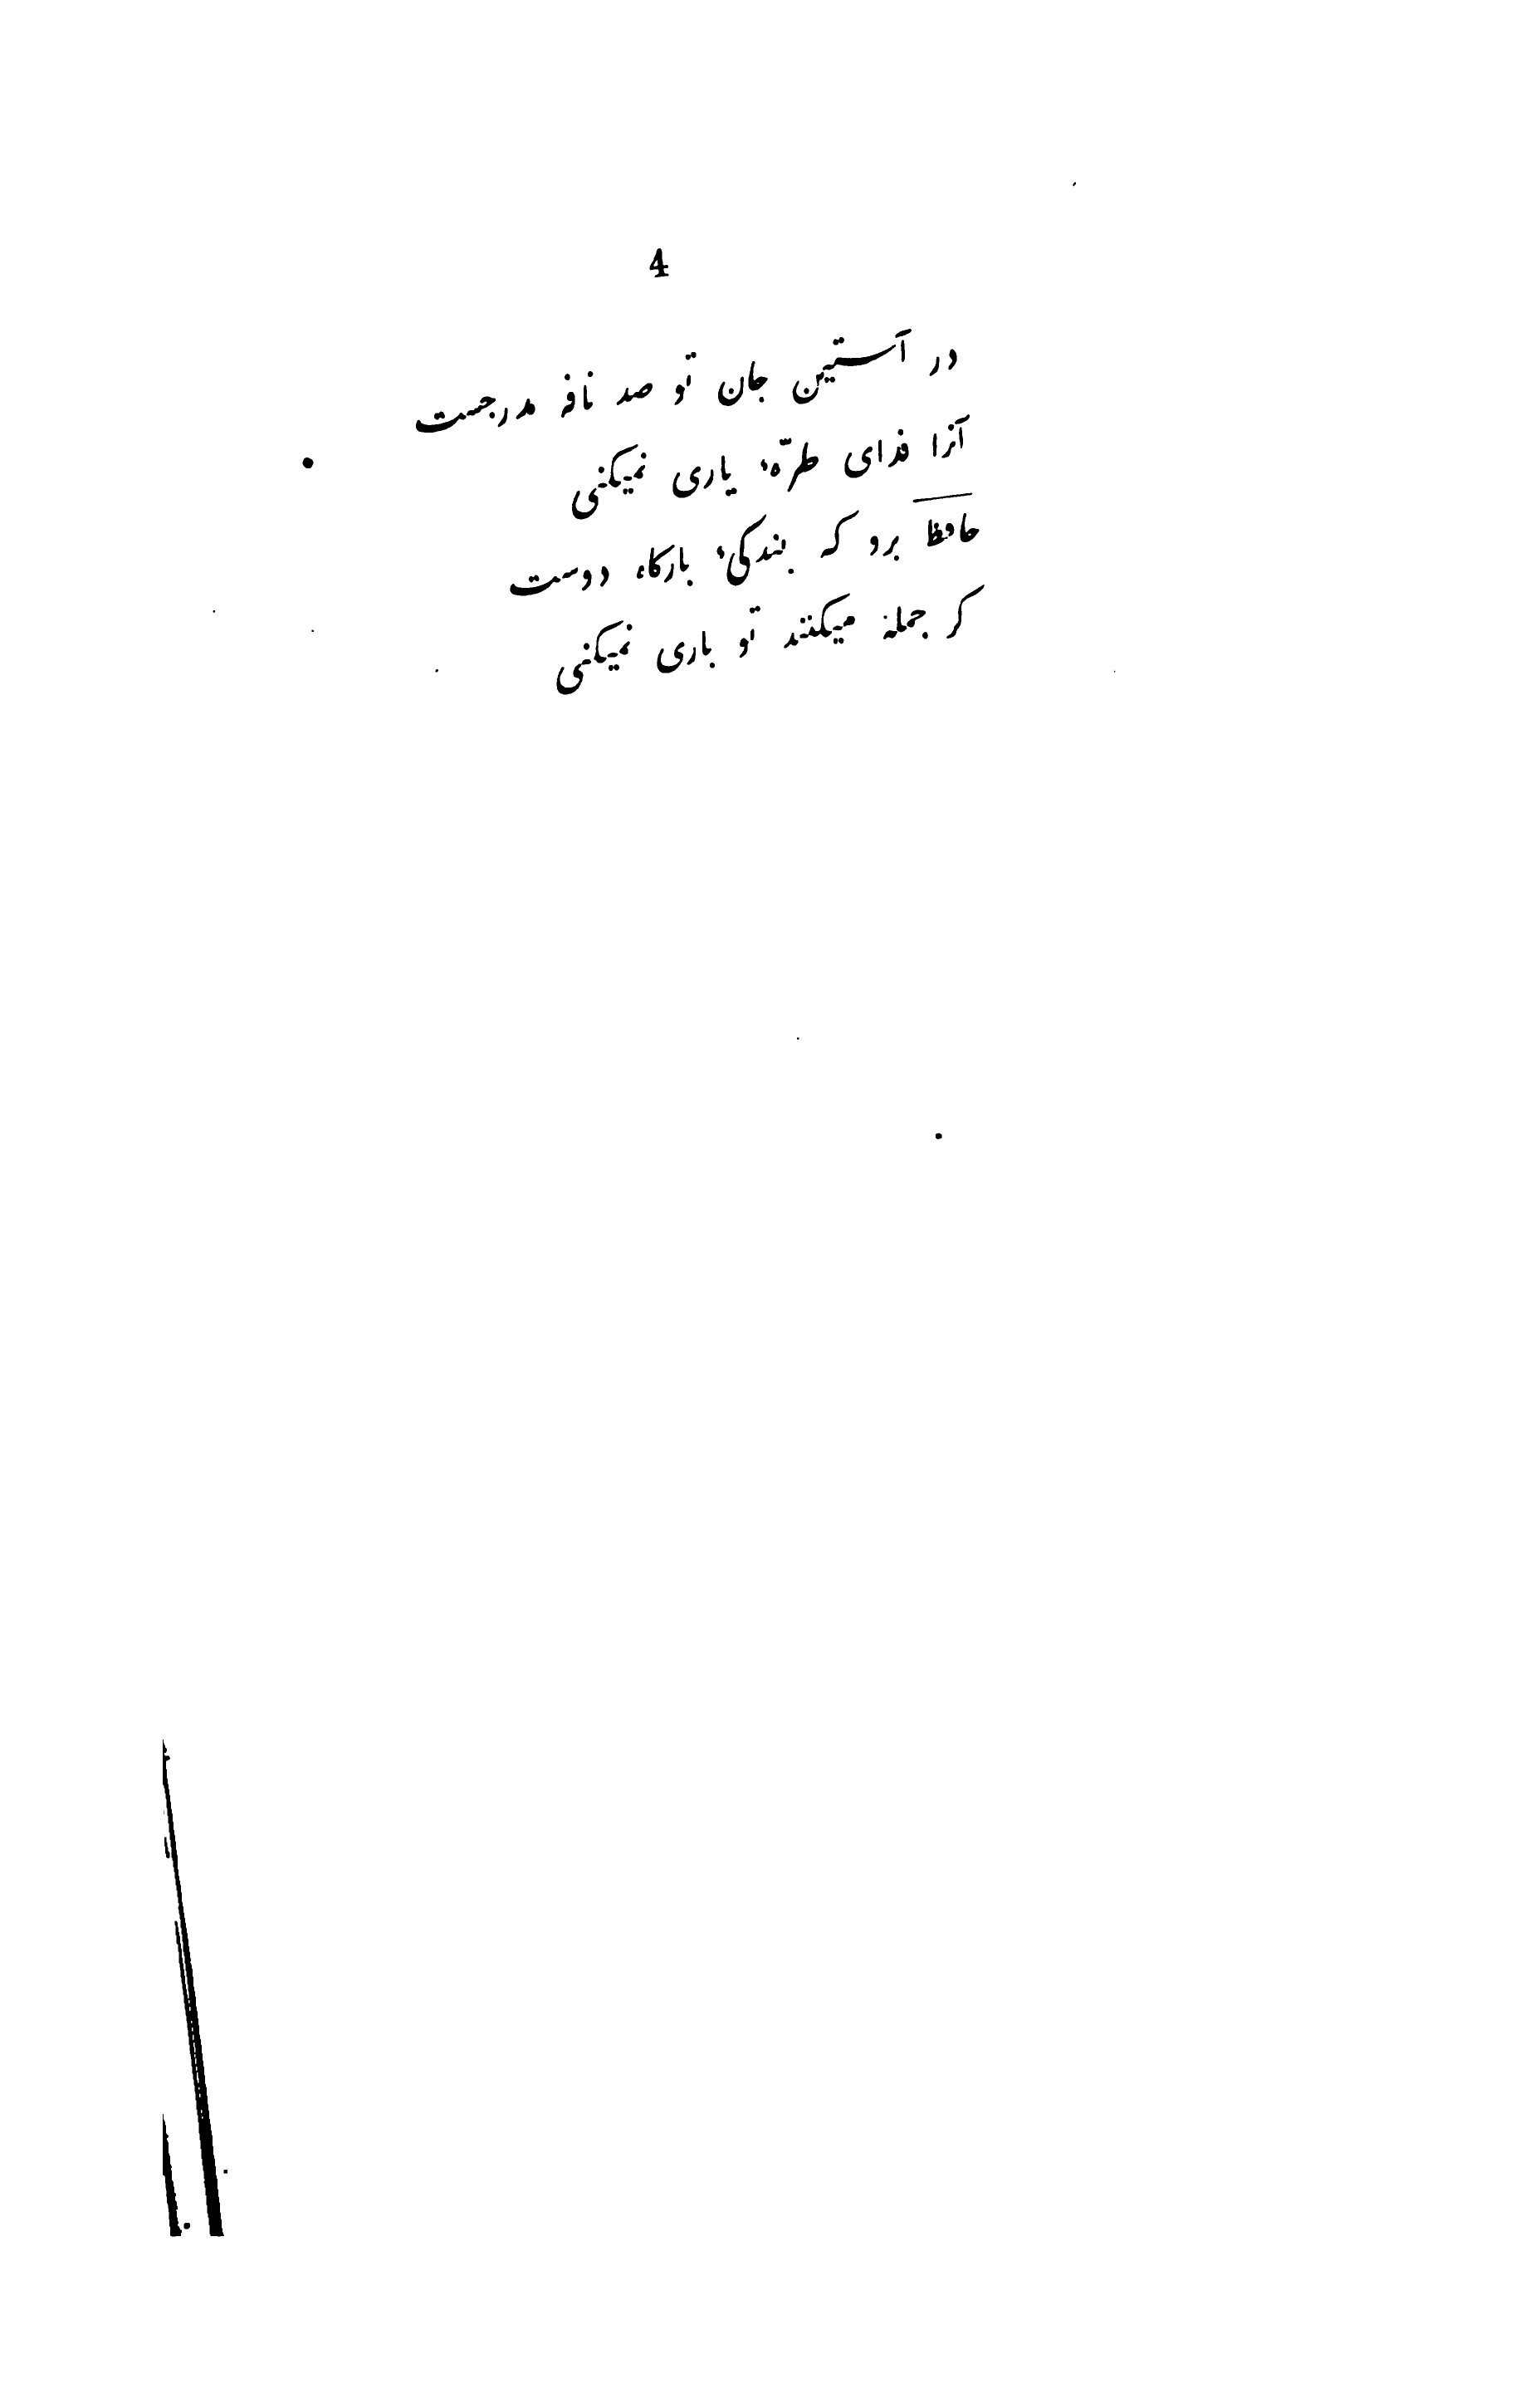 4
در آستین جان تو صد نافه مدرجست
آنرا فدای طرّهٔ یاری نمیکنی
حافظ برو که بندکیٔ بارکاه دوست
کر جمله میکنند تو باری نمیکنی